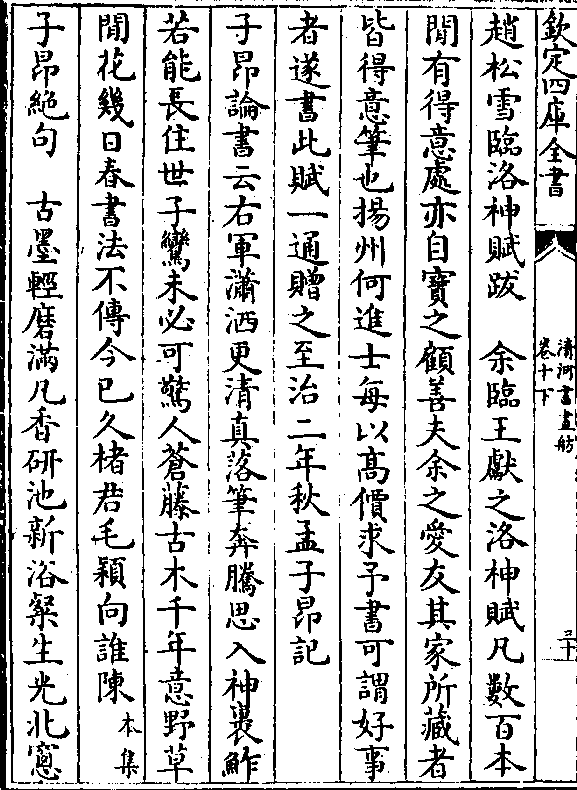 欽定四庫全書
清河書畫舫
卷十下
趙松雪臨洛神賦跋　余臨王獻之洛神賦凡數百本
間有得意處亦自寶之顧善夫余之愛友其家所藏者
皆得意筆也揚州何進士每以高價求予書可謂好事
者遂書此賦一通贈之至治二年秋孟子昂記
子昂論書云右軍瀟洒更清真落筆奔騰思入神裹鮓
若能長住世子鸞未必可驚人蒼藤古木千年意野草
閒花幾日春書法不傳今已久楮君毛穎向誰陳本集
子昂絶句　古墨輕磨滿几香研池新浴粲生光北窻